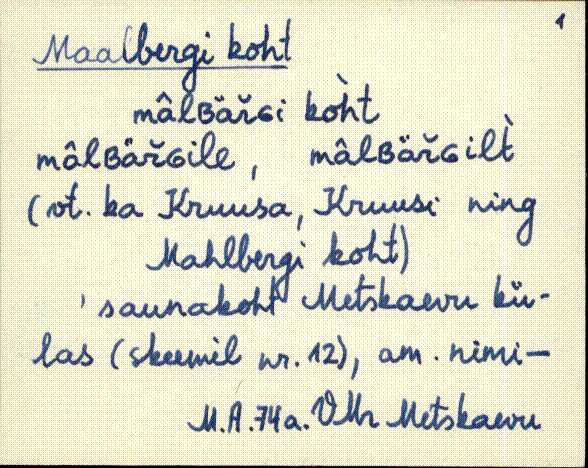 1
Maalbergi koht
mâlʙäřɢi koh̀t
mâlʙäřɢile, mâlʙäřɢilt̀
(vt. ka Kruusa, Kruusi ning
Mahlbergi koht)
' saunakoht Metskaevu kü-
las (skeemil nr. 12), am. nimi—
M.A. 74a. VMr Metskaevu